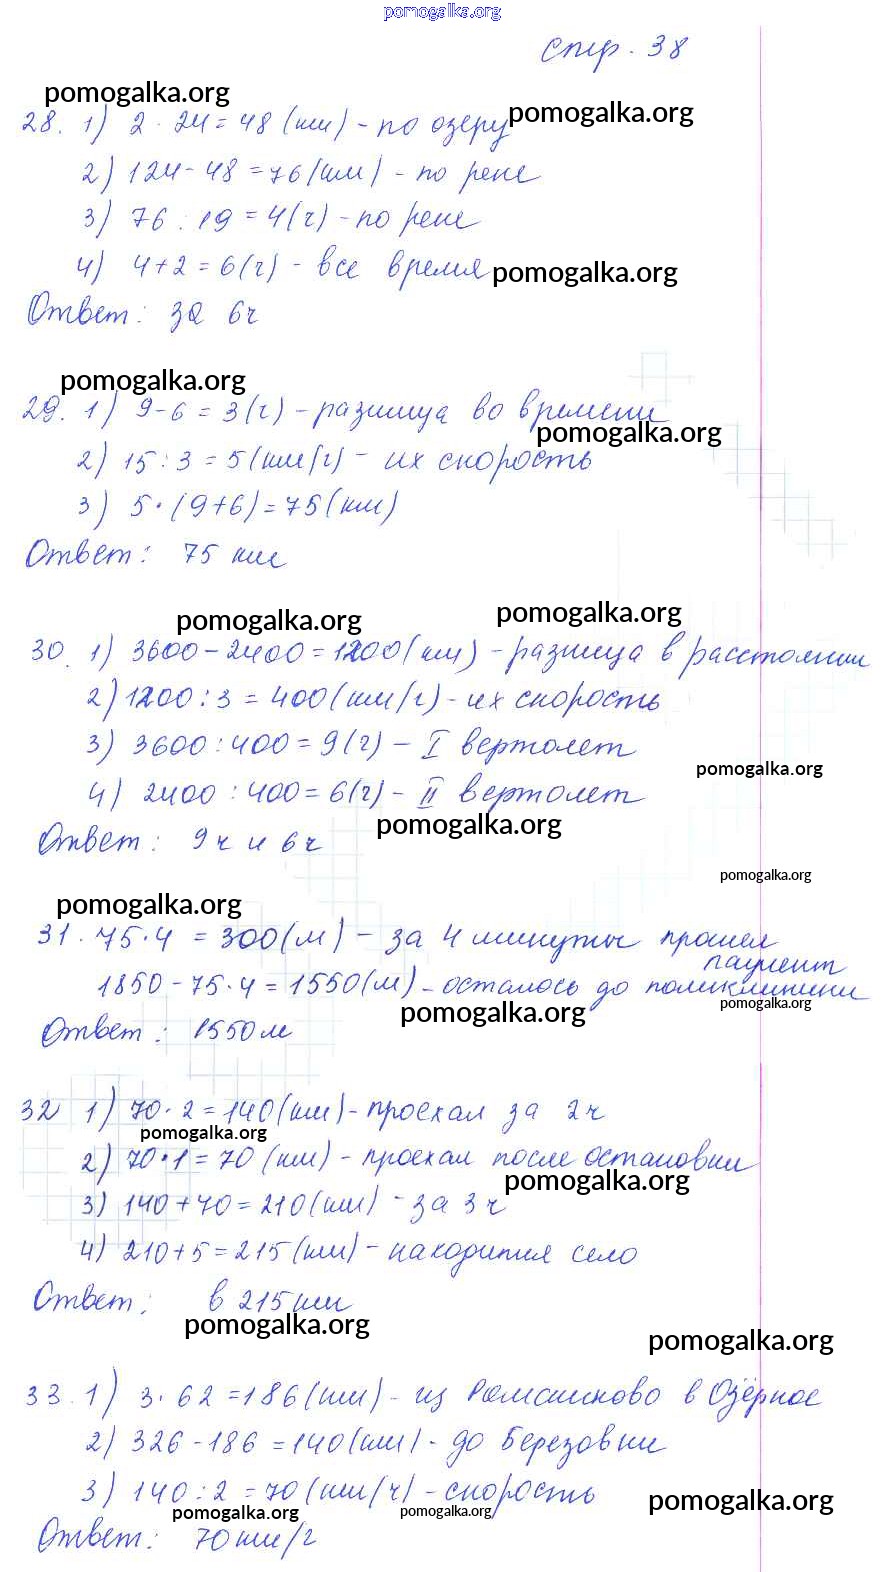 pomogalka.org
стр. 38
pomogalka.org
28. 1) 2 · 24 = 48 (км) - по озеру pomogalka.org
2) 124 - 48 = 76 (км) - по реке
3) 76 : 19 = 4 (ч) - по реке
4) 4 + 2 = 6 (ч) - все время pomogalka.org
Ответ: за 6 ч
pomogalka.org
29. 1) 9 - 6 = 3 (ч) - разница во времени
pomogalka.org
2) 15 : 3 = 5 (км/ч) - их скорость
3) 5 · (9 + 6) = 75 (км)
Ответ: 75 км
pomogalka.org pomogalka.org
30. 1) 3600 - 2400 = 1200 (км) - разница в расстоянии
2) 1200 : 3 = 400 (км/ч) - их скорость
3) 3600 : 400 = 9 (ч) - I вертолет
pomogalka.org
4) 2400 : 400 = 6 (ч) - II вертолет
pomogalka.org
Ответ: 9 ч и 6 ч
pomogalka.org
pomogalka.org
31. 75 · 4 = 300 (м) - за 4 минуты прошел
пациент
1850 - 75 · 4 = 1550 (м) - осталось до поликлиники
pomogalka.org pomogalka.org
Ответ: 1550 м
32 1) 70 · 2 = 140 (км) - проехал за 2 ч
pomogalka.org
2) 70 · 1 = 70 (км) - проехал после остановки
pomogalka.org
3) 140 + 70 = 210 (км) - за 3 ч
4) 210 + 5 = 215 (км) - находится село
Ответ: в 215 км
pomogalka.org
pomogalka.org
33. 1) 3 · 62 = 186 (км) - из Ромашково в Озёрное
2) 326 - 186 = 140 (км) - до Березовки
3) 140 : 2 = 70 (км/ч) - скорость
pomogalka.org pomogalka.org pomogalka.org
Ответ: 70 км/ч